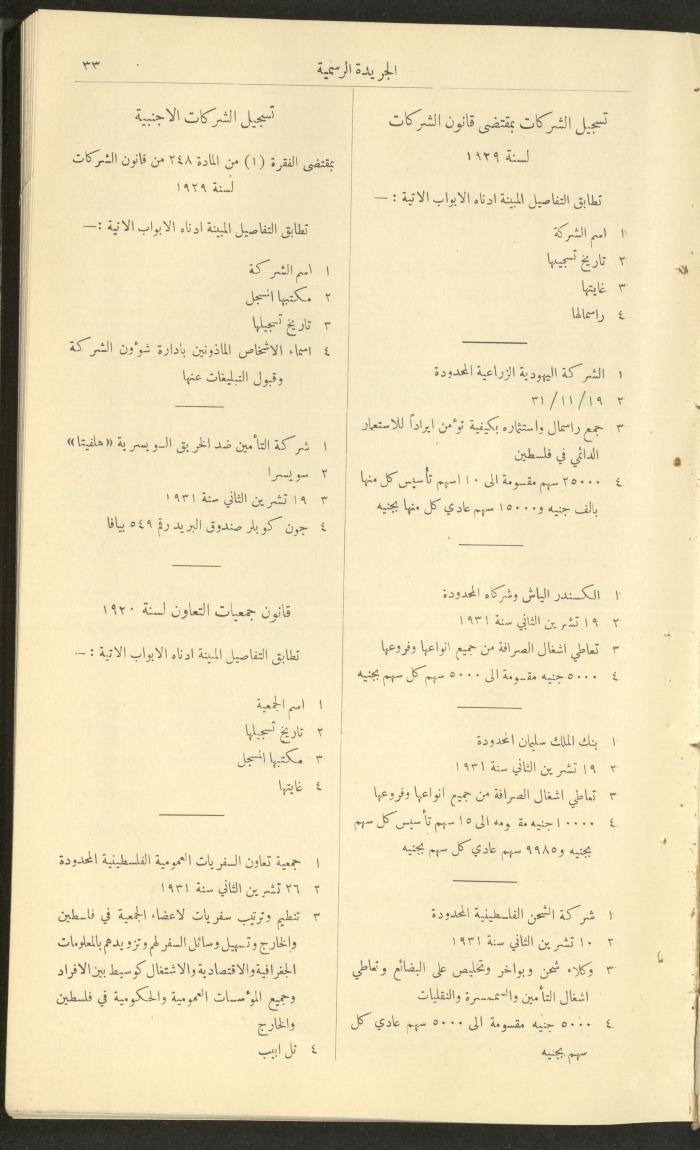 الجريدة الرسمية
٣٣
تسجيل الشركات بمقتضى قانون الشركات
لسنة ١٩٢٩
تطابق التفاصيل المبينة ادناه الابواب الاتية : —
١ اسم الشركة
٢ تاريخ تسجيلها
٣ غايتها
٤ راسمالها
١ الشركة اليهودية الزراعية المحدودة
٢ ١٩/ ١١/ ٣١
٣ جمع راسمال واستثماره بكيفية تؤمن ايراداً للاستعمار
الدائمي في فلسطين
٤ ٢٥٠٠٠ سهم مقسومة الى ١٠ اسهم تأسيس كل منها
بالف جنيه و١٥٠٠٠ سهم عادي كل منها بجنيه
١ الكسندر الياش وشركاه المحدودة
٢ ١٩ تشرين الثاني سنة ١٩٣١
٣ تعاطي اشغال الصرافة من جميع انواعها وفروعها
٤ ٥٠٠٠ جنيه مقسومة الى ٥٠٠٠ سهم كل سهم بجنيه
١ بنك الملك سليمان المحدودة
٢ ١٩ تشرين الثاني سنة ١٩٣١
٣ تعاطي اشغال الصرافة من جميع انواعها وفروعها
٤ ١٠٠٠٠ جنيه مقسومه الى ١٥ سهم تأسيس كل سهم
بجنيه و٩٩٨٥ سهم عادي كل سهم بجنيه
١ شركة الشحن الفلسطينية المحدودة
٢ ١٠ تشرين الثاني سنة ١٩٣١
٣ وكلاء شحن وبواخر وتخليص على البضائع وتعاطي
اشغال التأمين والسمسرة والنقليات
٤ ٥٠٠٠ جنيه مقسومة الى ٥٠٠٠ سهم عادي كل
سهم بجنيه
تسجيل الشركات الاجنبية
بمقتضى الفقرة (١) من المادة ٢٤٨ من قانون الشركات
لسنة ١٩٢٩
تطابق التفاصيل المبينة ادناه الابواب الاتية :—
١ اسم الشركة
٢ مكتبها المسجل
٣ تاريخ تسجيلها
٤ اسماء الاشخاص الماذونين بادارة شوءون الشركة
وقبول التبليغات عنها
١ شركة التأمين ضد الحريق السويسرية «هلفيتا»
٢ سويسرا
٣ ١٩ تشرين الثاني سنة ١٩٣١
٤ جون كوبلر صندوق البريد رقم ٥٤٩ بيافا
قانون جمعيات التعاون لسنة ١٩٢٠
تطابق التفاصيل المبينة ادناه الابواب الاتية : —
١ اسم الجمعية
٢ تاريخ تسجيلها
٣ مكتبها المسجل
٤ غايتها
١ جمعية تعاون السفريات العمومية الفلسطينية المحدودة
٢ ٢٦ تشرين الثاني سنة ١٩٣١
٣ تنظيم وترتيب سفريات لاعضاء الجمعية في فلسطين
والخارج وتسهيل وسائل السفر لهم وتزويدهم بالمعلومات
الجغرافية والاقتصادية والاشتغال كوسيط بين الافراد
وجميع المؤسسات العمومية والحكومية في فلسطين
والخارج
٤ تل ابيب